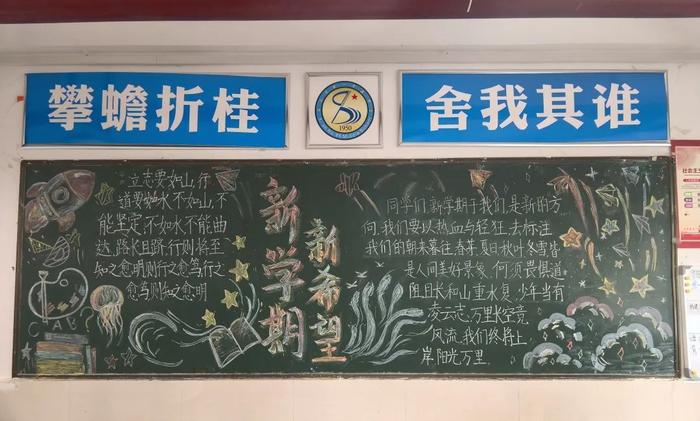 攀蟾折桂
1950
舍我其谁
立志要如山,行
道要如水,不如山,不
能坚定,不如水不能曲
达,路长且跻,行则将至
知之愈明则行之愈笃,行之
愈笃则知之愈明
新学期
新希望
同学们,新学期于我们,是新的方
向,我们要以热血与轻狂,去标注
我们的朝来暮往,春芽夏日秋叶冬雪皆
是人间美好景象,何须畏惧道
阻且长和山重水复,少年当有
凌云志,万里长空竞
风流,我们终将上
岸,阳光万里